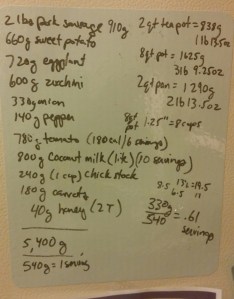 2 lbs pork sausage 910g
660g sweet potato
720g eggplant
600g zucchini
330g onion
140g pepper
780g tomato (180cal/6 servings)
800g coconut milk (1.4k)(10 servings)
240g (1 cup) chick stock
180g carrots
40g honey (2T)
5,400g
540g = 1 serving
2qt teapot = 838g
1 lb 13.5oz
8qt pot = 1625g
3lb 9.25oz
2qt pan = 1290g
2lb 13.5oz
8qt pot 1.25" = 8 cups
8.5
6.5
330g
540 = .61
servings